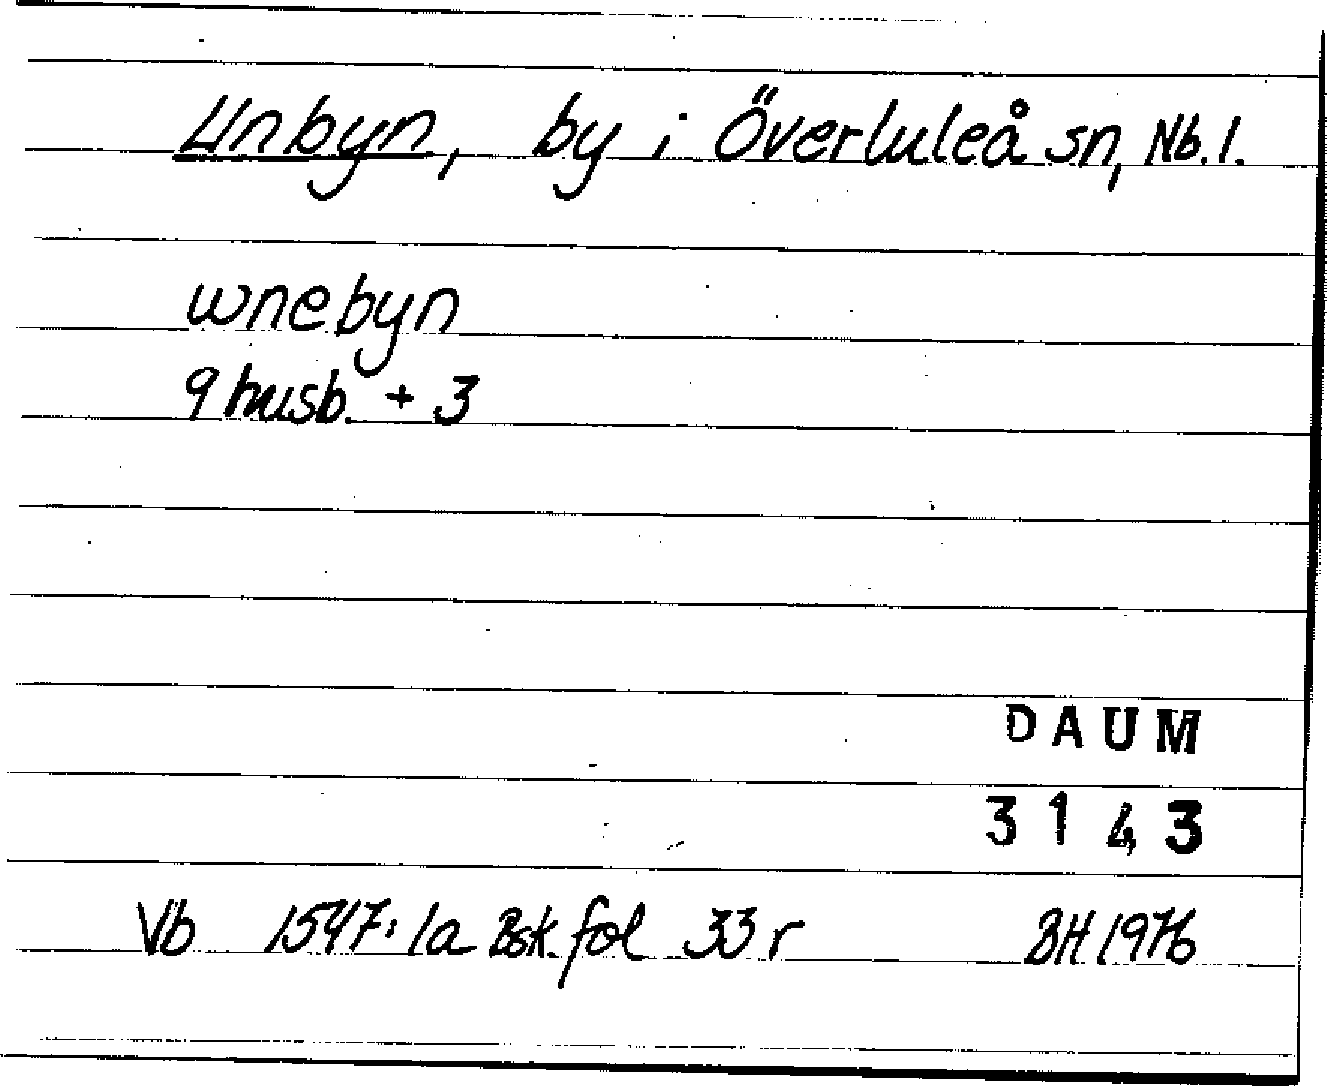 Unbyn, by i Överluleå sn, Nb. l.
wnebyn
9 husb. + 3
DAUM
3143
Vb 1547:1a Bsk. fol 33 r BH 1976